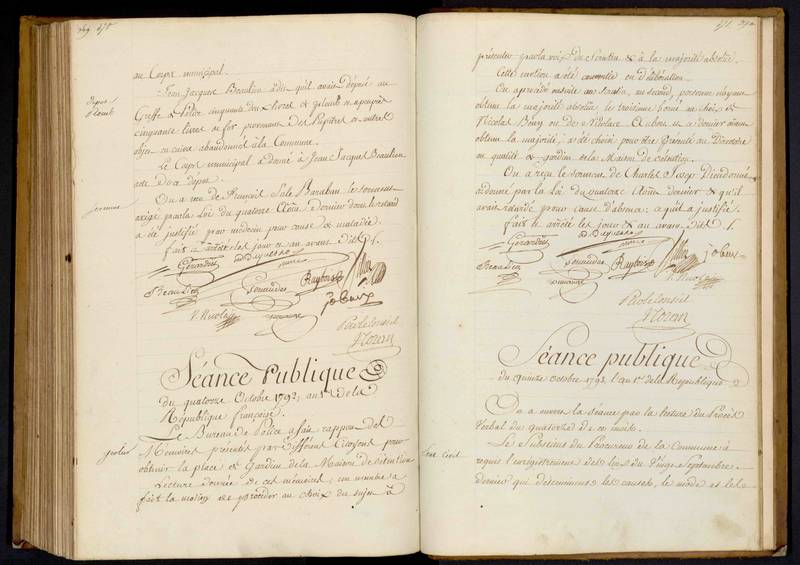 au Corps municipal.
Jean Jacques Beaulieu a dit qu'il avait déposé au
Greffe de Police cinquante deux livres et
cinquante livres de fer provenant des Pupitres et autres
objets en cuivre abandonnés à la Commune.
Le Corps municipal a donné à Jean Jacques Beaulieu
acte de ce dépôt.
On a reçu de François Sale Baraban le serment
exigé par la Loi du quatorze Août dernier dont le retard
a été justifié pour médecin pour cause de maladie.
fait et arrêté les jour et an avant dits.
Gerardin
D Bayesson
maire
Beaulieu
Raybois
V. Nicolas
Par le Conseil
Séance Publique
du quatorze Octobre 1792, an 1er de la
République française.
Le Bureau de Police a fait rapport des
Mémoires présentés par différents Citoyens pour
obtenir la place de Gardien de la Maison de détention
Lecture donnée de ces mémoires, un membre a
fait la motion de procéder au choix du sujet à
présenter par la voix du Scrutin et à la majorité absolue.
Cette motion a été convertie en délibération.
On a procédé ensuite au Scrutin, au second, personne n'ayant
obtenu la majorité absolue le troisième borné au choix de
Nicolas Boury ou de Nicolas ce dernier ayant
obtenu la majorité, a été choisi pour être présenté au Directoire
en qualité de gardien de la Maison de détention.
On a reçu le serment de Charles Joseph Dieudonné
ordonné par la Loi du quatorze Août dernier et qu'il
avait retardé pour cause d'absence; ce qu'il a justifié.
fait et arrêté les jour et an avant dits.
Gerardin
D Bayesson
maire
Beaulieu
Raybois
V. Nicolas
Par le Conseil
Séance publique
du quinze Octobre 1792, l'an 1er de la République
On a ouvert la séance par la lecture du Procès
Verbal du quatorze de ce mois.
Le Substitut du Procureur de la Commune a
requis l'enregistrement des Lois du vingt Septembre
dernier qui déterminent les causes, le mode et les